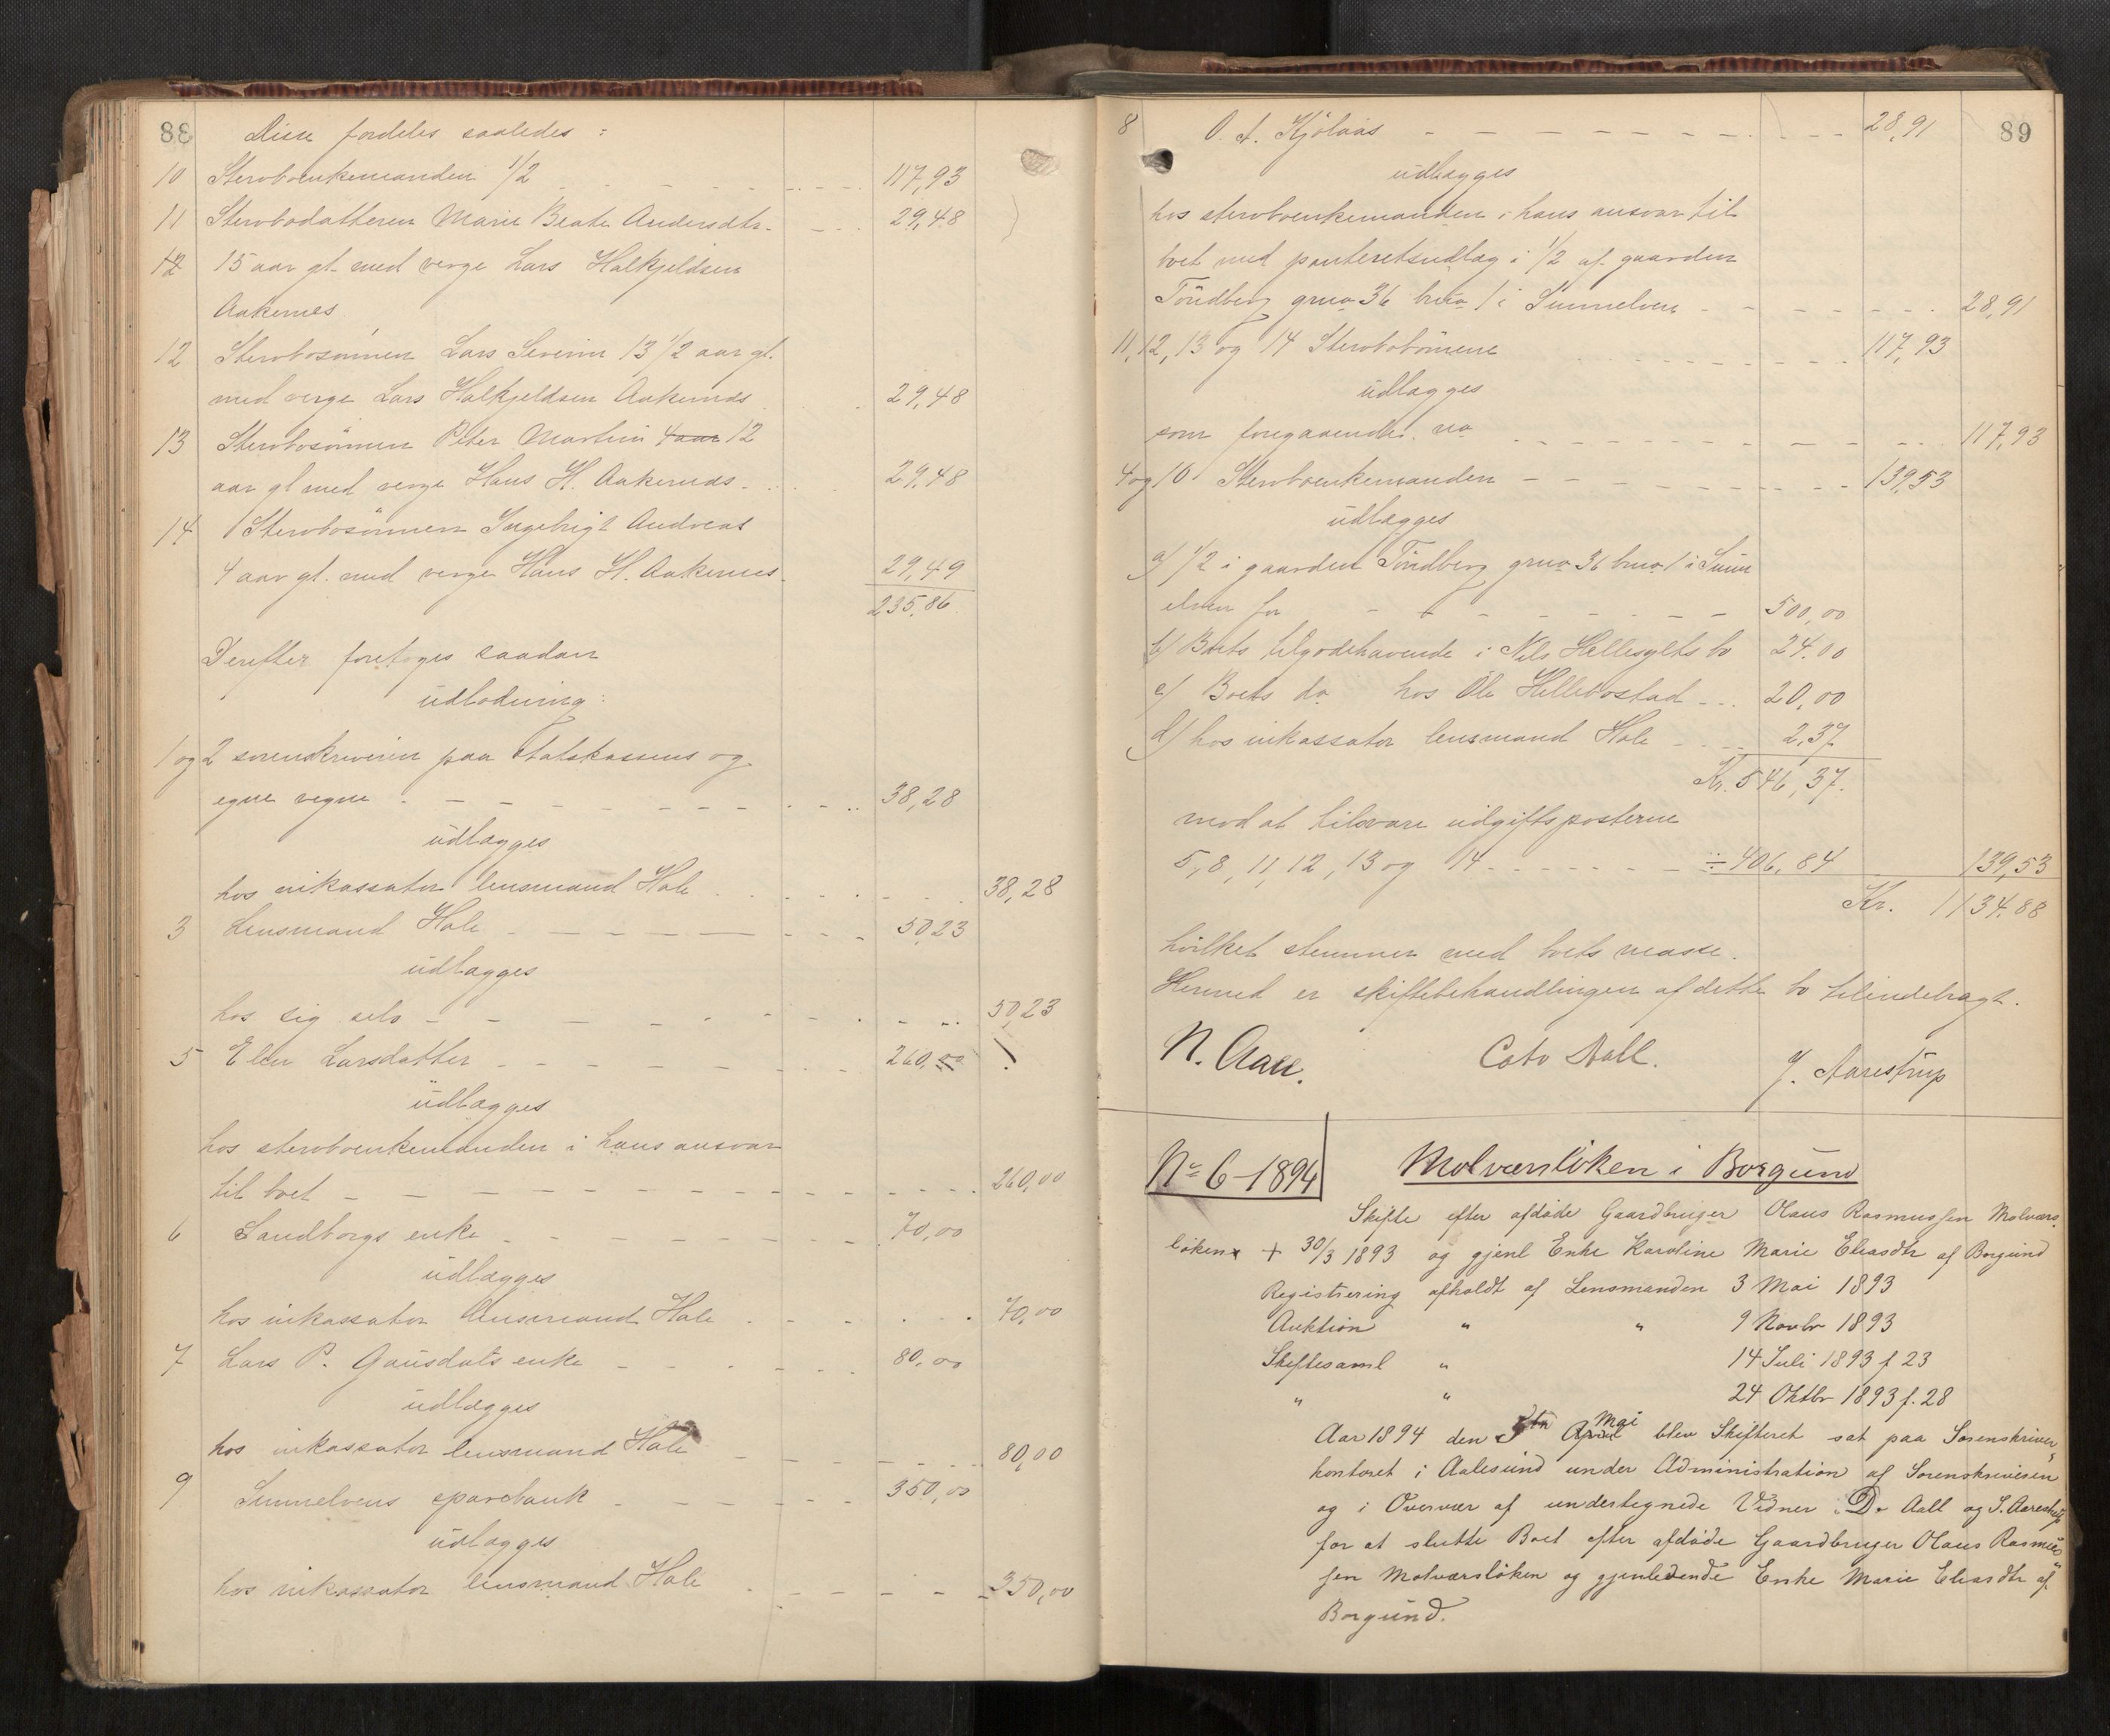 88
Disse fordeles saaledes :
10 Stervboenkemanden 1/2 117,93
11 Stervbodatteren Marie Beate Andersdtr. 29,48
12 15 aar gl. med verge Lars Halkjeldsen
Aakernes
12 Stervbosönnen Lars Severin 13 1/2 aar gl.
med verge Lars Halkjeldsen Aakernes 29,48
13 Stervbosönnen Peter Martin 4 aar 12
aar gl med verge Hans H. Aakernes 29,48
14 Stervbosönnen Ingebrigt Andreas
4 aar gl. med verge Hans H. Aakernes 29,49
235,86
Derefter foretoges saadan
udlodning :
1 og 2 sorenskriveren paa statskassens og
egne vegne 38,28
udlægges
hos inkassator lensmand Hole 38,28
3 Lensmand Hole 50,23
udlægges
hos sig selv 50,23
5 Elen Larsdatter 260,00
udlægges
hos stervboenkemanden i hans ansvar
til boet 260,00
6 Landborgs enke 70,00
udlægges
hos inkassator lensmand Hole 70,00
7 Lars P. Gausdals enke 80,00
udlægges
hos inkassator lensmand Hole 80,00
9 Sunnelvens sparebank 350,00
udlægges
hos inkassator lensmand Hole 350,00
89
8 O. A. Kjölaas 28,91
udlægges
hos stervboenkemanden i hans ansvar til
boet med panteretsudlæg i 1/2 af gaarden
Töndberg grno 36 brno 1 i Sunnelven 28,91
11, 12, 13 og 14 Stervbobörnene 117,93
udlægges
som foregaaende no 117,93
4 og 10 Stervboenkemanden 139,53
udlægges
a) 1/2 i gaarden Töndberg grno 36 brno 1 i Sunn
elven for 500,00
b) Boets tilgodehavende i Nils Hellesylts bo 24.00
c) Boets do hos Ole Hellebostad 20,00
d) hos inkassator lensmand Hole 2,37
Kr. 546,37.
mod at tilsvare udgiftsposterne
5, 8, 11, 12, 13 og 14 ÷ 406,84 139,53
Kr. 1134.88
hvilket stemmer med boets masse.
Hermed er skiftebehandlingen af dette bo tilendebragt.
N. Aall. Cato Aall. J. Aarestrup
No 6-1894 Molværsliken i Borgund
Skifte efter afdöde Gaardbruger Olaus Rasmussen Molværs
löken + 30/3 1893 og gjenl Enke Karoline Marie Eliasdtr af Borgund
Registrering afholdt af Lensmanden 3 Mai 1893
Auktion " " 9 Novbr 1893
Skiftesaml " 14 Juli 1893 f 23
" " 24 Oktbr 1893 f. 28
Aar 1894 den 5te April Mai blev Skifteret sat paa Sorenskriver
kontoret i Aalesund under Administration af Sorenskriveren
og i Overvær af undertegnede Vidner : D. Aall og S. Aarestrup
for at slutte Boet efter afdöde Gaardbruger Olaus Rasmus
sen Molværslöken og gjenlevende Enke Marie Eliasdtr af
Borgund.